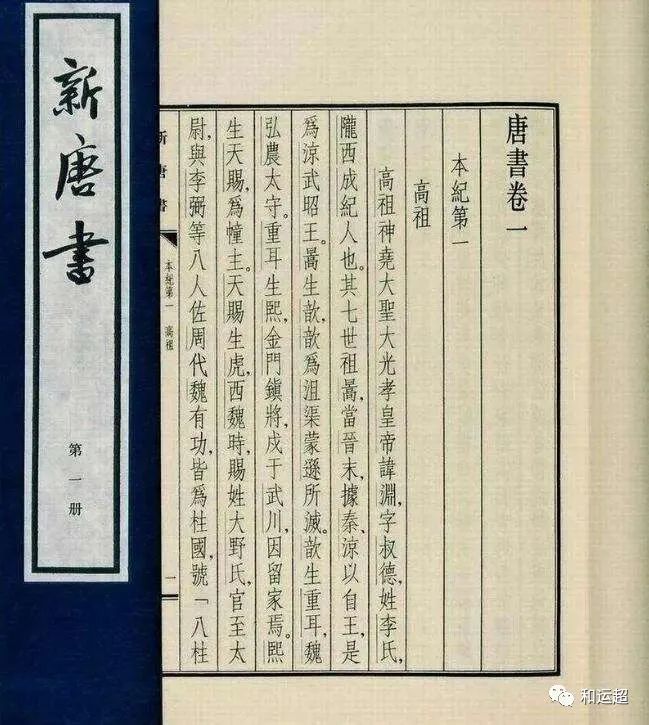 新唐書
第一册
唐書卷一
本紀第一
高祖
高祖神堯大聖大光孝皇帝諱淵，字叔德，姓李氏，
隴西成紀人也。其七世祖暠，當晉末，據秦、涼以自王，是
爲涼武昭王。暠生歆，歆爲沮渠蒙遜所滅。歆生重耳，魏
弘農太守。重耳生熙，金門鎮將，戍于武川，因留家焉。熙
生天賜，爲幢主。天賜生虎，西魏時，賜姓大野氏，官至太
尉，與李弼等八人佐周代魏有功，皆爲柱國，號「八柱
新唐書
本紀第一 高祖
一
和运超